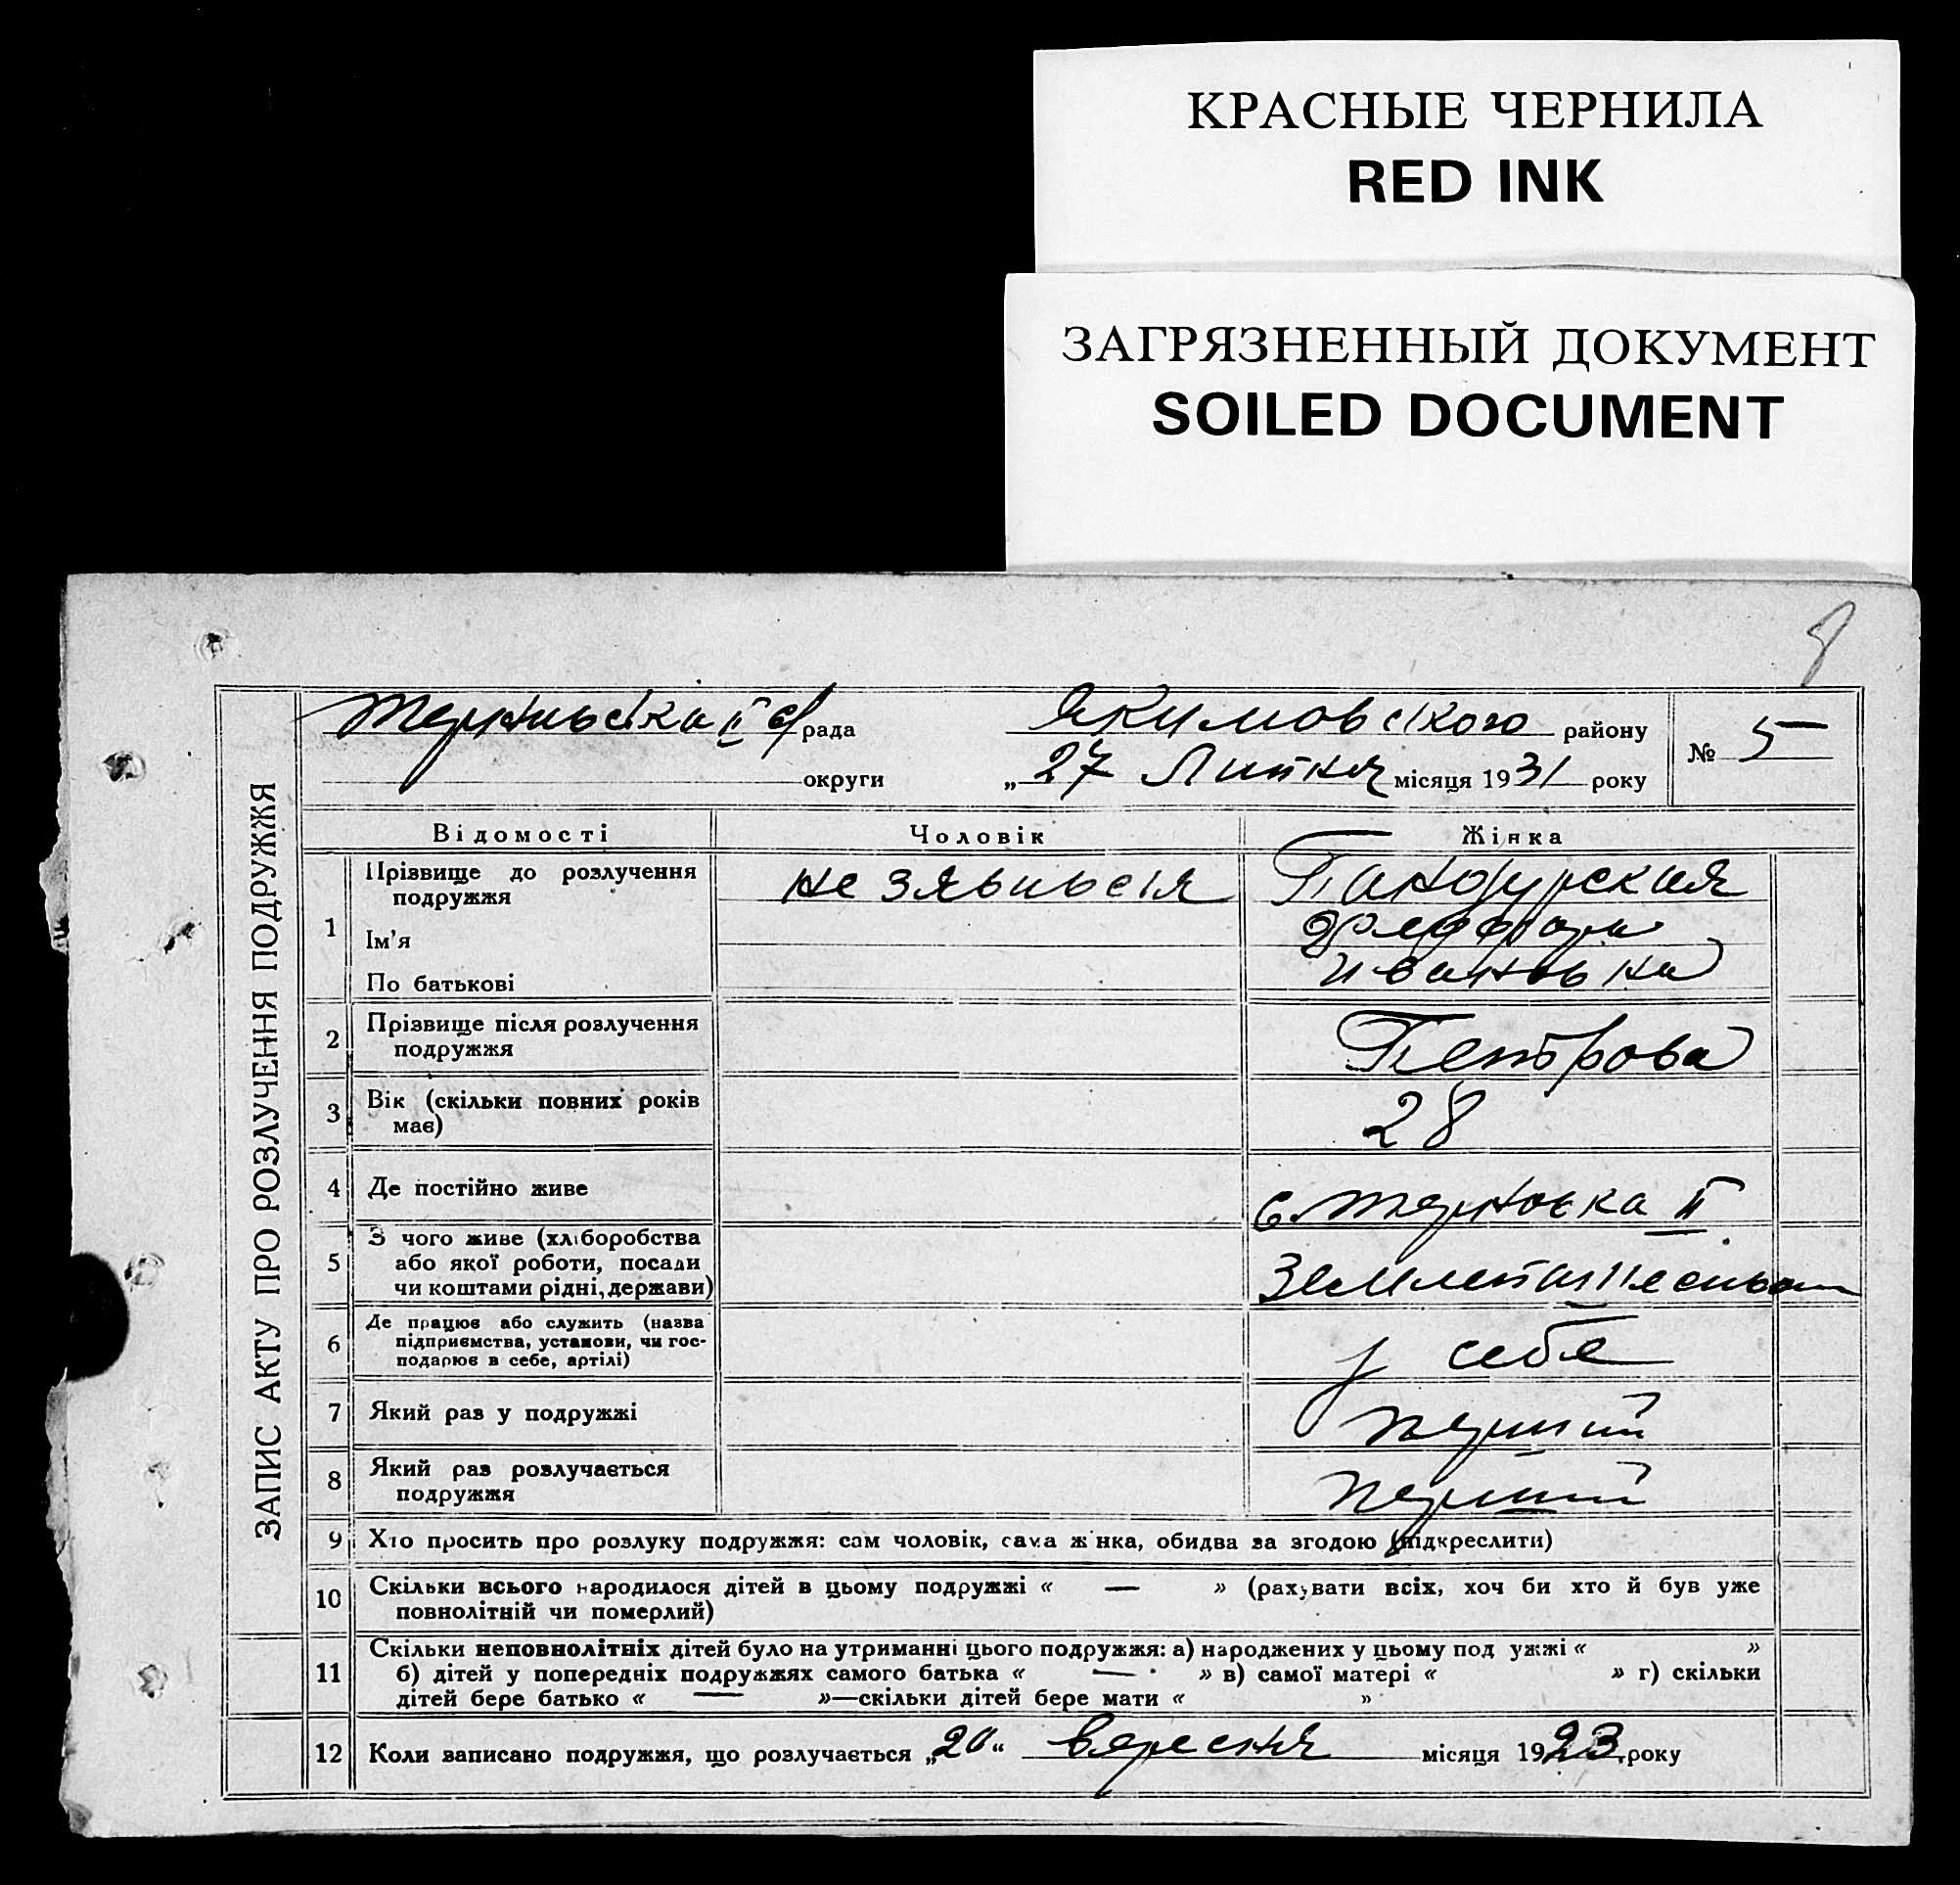 КРАСНЫЕ ЧЕРНИЛА
RED INK
ЗАГРЯЗНЕННЫЙ ДОКУМЕНТ
SOILED DOCUMENT
ЗАПИС АКТУ ПРО РОЗЛУЧЕННЯ ПОДРУЖЖЯ
II рада Якимовського району № 5
округи „27 Липня місяця 1931 року
Відомості Чоловік Жінка
1 Прізвище до розлучення подружжя не зявився Пандурская
Ім'я
По батькові Ивановна
2 Прізвище після розлучення подружжя Петрова
3 Вік (скільки повних років має) 28
4 Де постійно живе с. Терновка II
5 З чого живе (хліборобства
або якої роботи, посади
чи коштами рідні, держави)
6 Де працює або служить (назва
підприємства, установи, чи гос-
подарює в себе, артілі) у себе
7 Який раз у подружжі перший
8 Який раз розлучається подружжя перший
9 Хто просить про розлуку подружжя: сам чоловік, сама жінка, обидва за згодою (підкреслити)
10 Скільки всього народилося дітей в цьому подружжі « — » (рахувати всіх, хоч би хто й був уже
повнолітній чи померлий)
11 Скільки неповнолітніх дітей було на утриманні цього подружжя: а) народжених у цьому подружжі « »
б) дітей у попередніх подружжях самого батька « — » в) самої матері « » г) скільки
дітей бере батько « — »—скільки дітей бере мати « »
12 Коли записано подружжя, що розлучається „20“ вересня місяця 1923 року